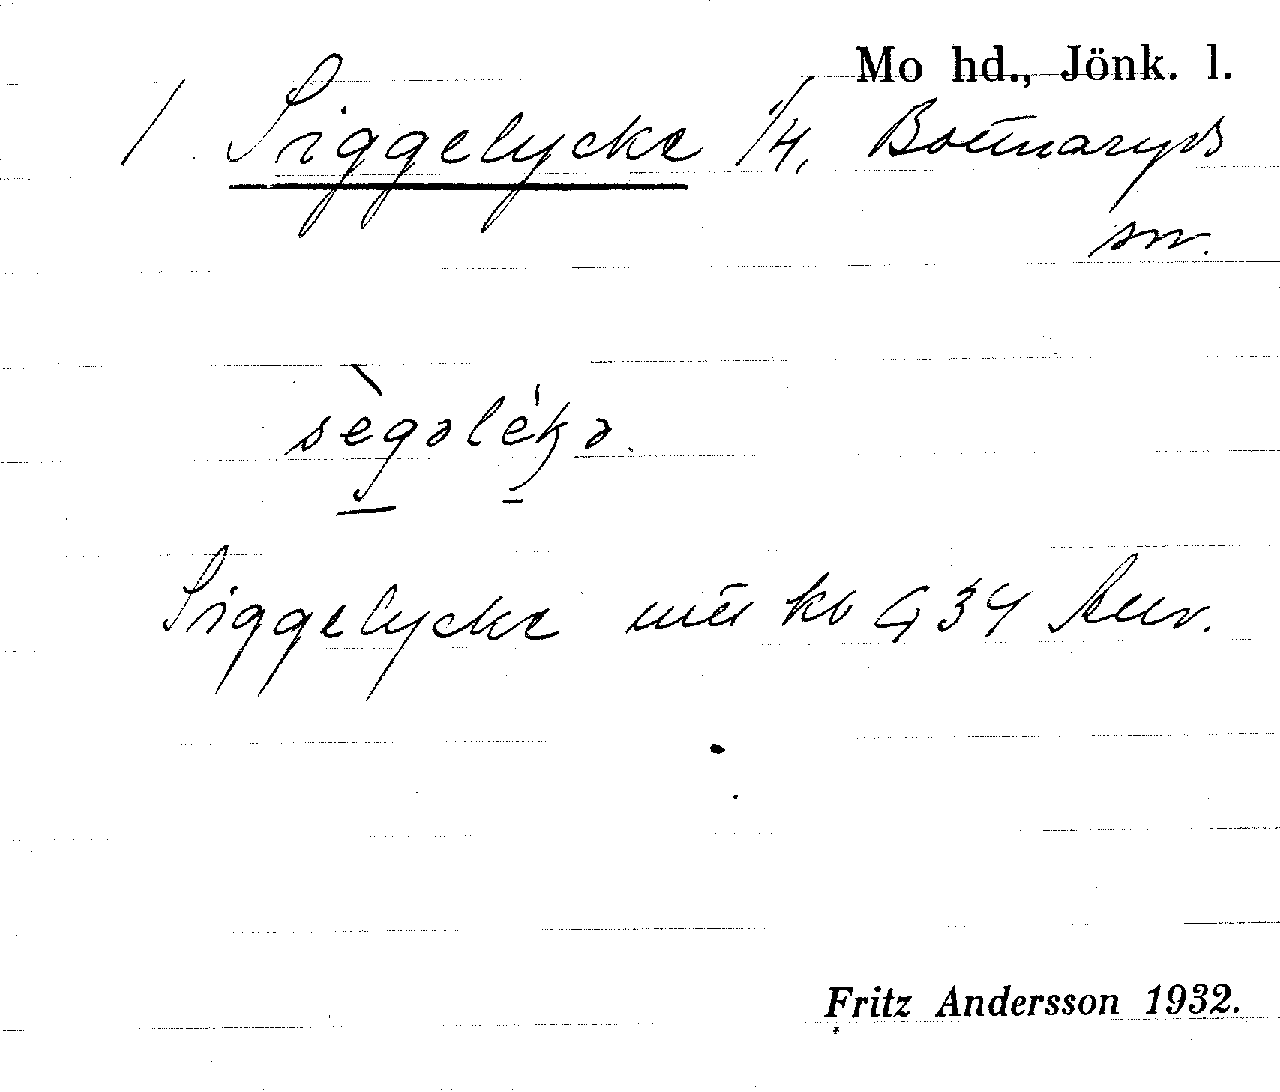 Mo hd., Jönk. l.
1. Siggelycke 1/4, Bottnaryds
sn.
sègəlékə.
Siggelycke ktr G 34 Auv.
Fritz Andersson 1932.